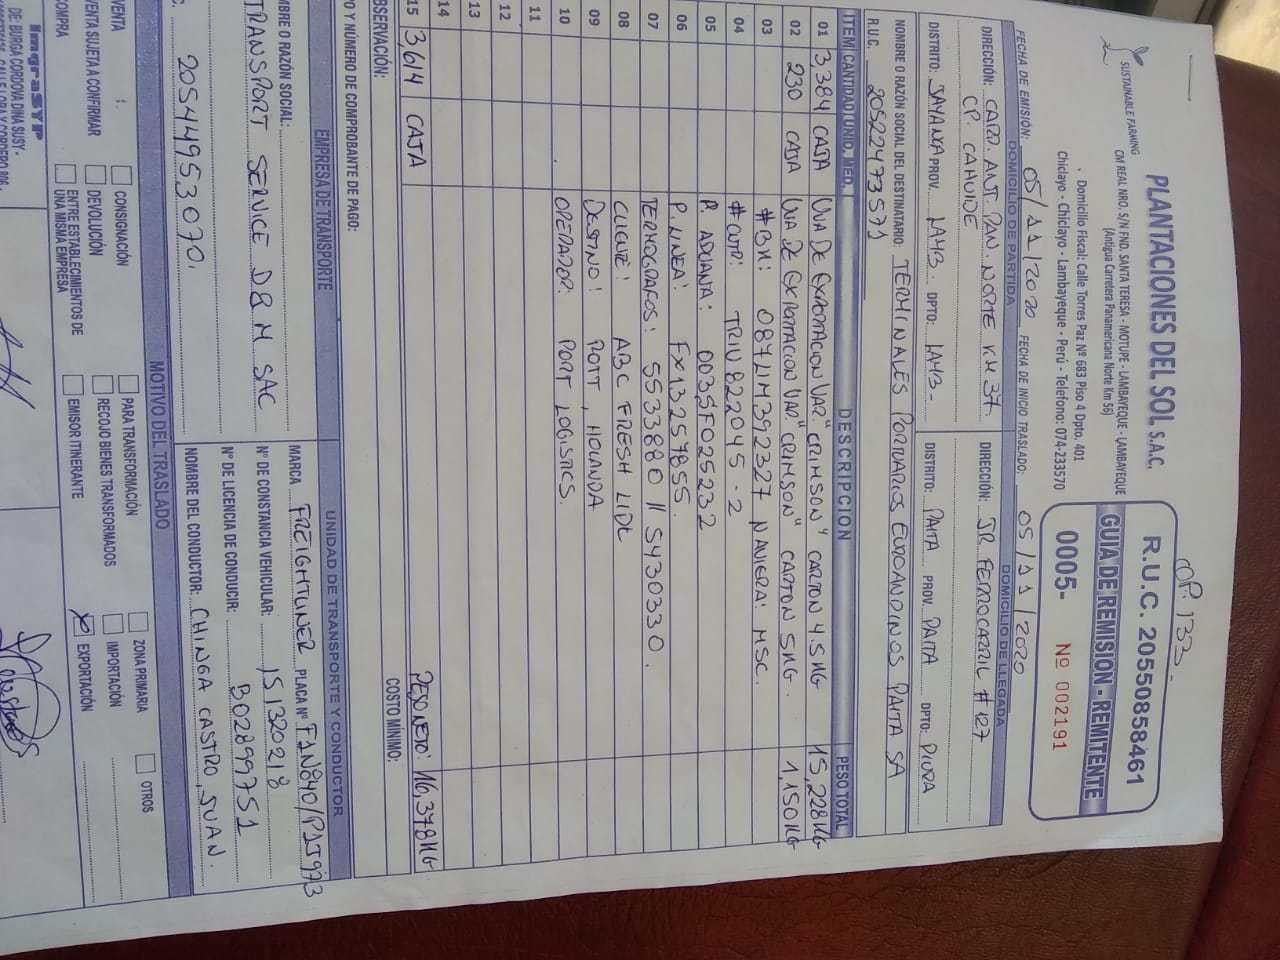 OP. 133 -
SUSTAINABLE FARMING
PLANTACIONES DEL SOL S.A.C.
CM REAL NRO. S/N FND. SANTA TERESA - MOTUPE - LAMBAYEQUE - LAMBAYEQUE
(Antigua Carretera Panamericana Norte Km 56)
Domicilio Fiscal: Calle Torres Paz Nº 683 Piso 4 Dpto. 401
Chiclayo - Chiclayo - Lambayeque - Perú - Telefono: 074-233570
R.U.C. 20550858461
GUIA DE REMISION - REMITENTE
0005- Nº 002191
FECHA DE EMISIÓN: 05/11/2020 FECHA DE INICIO TRASLADO: 05/11/2020
DOMICILIO DE PARTIDA
DIRECCIÓN: CARR. ANT. PAN. NORTE KM 37
CP. CAHUIDE
DISTRITO: JAYANCA PROV. LAMB. DPTO: LAMB-
DOMICILIO DE LLEGADA
DIRECCIÓN: JR FERROCARRIL # 127
DISTRITO: PAITA PROV. PAITA DPTO: PIURA
NOMBRE O RAZÓN SOCIAL DEL DESTINATARIO: TERMINALES PORTUARIOS EUROANDINOS PAITA SA
R.U.C. 20522473571
ITEM CANTIDAD UNID. MED. DESCRIPCION PESO TOTAL
01 3,384 CAJA UVA DE EXPORTACION VAR. "CRIMSON" CARTON 4.5 KG 15,228KG
02 230 CAJA UVA DE EXPORTACION VAR. "CRIMSON" CARTON 5KG. 1,150KG
03 #BK: 087LIM392327 NAVIERA: MSC.
04 #CTR: TRIU 822045 - 2
05 P. ADUANA: 0035F025232
06 P. LINEA: FX13257855.
07 TERMOGRAFOS: 5533880 // 5430330.
08 CLIENTE: ABC FRESH LIDL
09 DESTINO: ROTT, HOLANDA
10 OPERADOR: PORT LOGISTICS.
11
12
13
14
15 3,614 CAJA PESO NETO: 16,378KG
OBSERVACIÓN: COSTO MÍNIMO:
PO Y NÚMERO DE COMPROBANTE DE PAGO:
EMPRESA DE TRANSPORTE
MBRE O RAZÓN SOCIAL:
TRANSPORT SERVICE D & M SAC
C. 20544953070.
UNIDAD DE TRANSPORTE Y CONDUCTOR
MARCA FREIGHTLINER PLACA Nº F1N840/P1J973
Nº DE CONSTANCIA VEHICULAR: 151320218
Nº DE LICENCIA DE CONDUCIR: B02899751
NOMBRE DEL CONDUCTOR: CHINGA CASTRO JUAN.
MOTIVO DEL TRASLADO
VENTA CONSIGNACIÓN PARA TRANSFORMACIÓN ZONA PRIMARIA OTROS
VENTA SUJETA A CONFIRMAR DEVOLUCIÓN RECOJO BIENES TRANSFORMADOS IMPORTACIÓN
COMPRA ENTRE ESTABLECIMIENTOS DE UNA MISMA EMPRESA EMISOR ITINERANTE X EXPORTACIÓN
IngraSYP
DE: BURGA CORDOVA DINA SUSY -